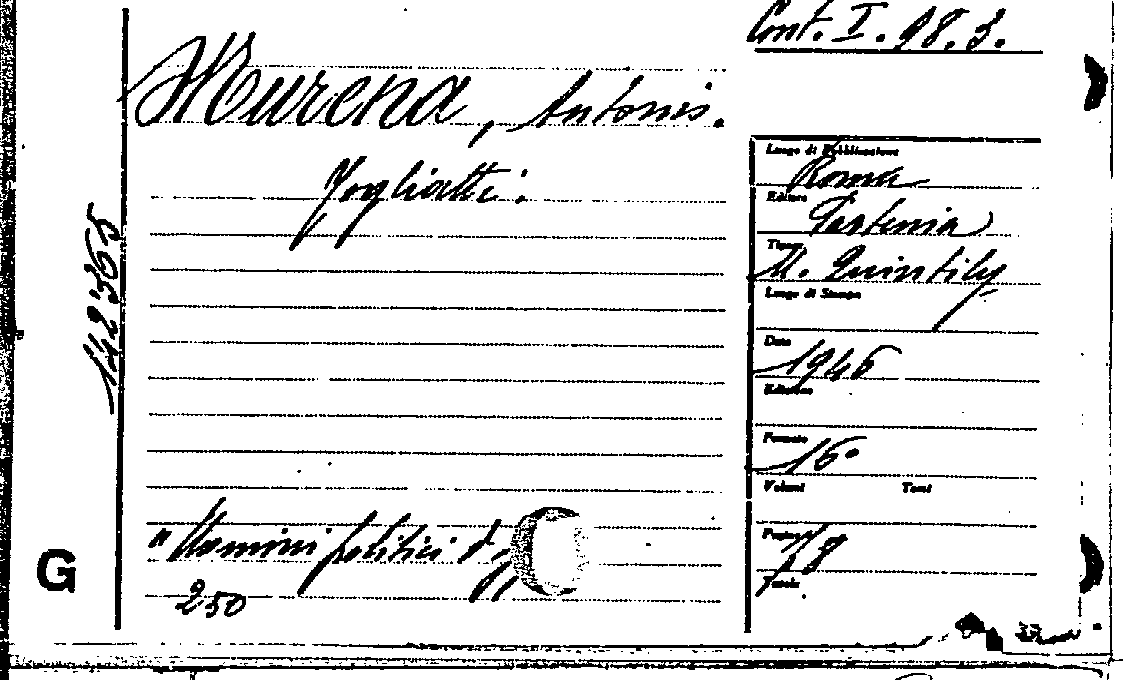 Cont. I. 98. 3.
Murena, Antonio.
Togliatti.
Luogo di Pubblicazione
Roma
Editore
Partenia
Tipogr.
M. Quintily
Luogo di Stampa
Data
1946
Edizione
Formato
16°
Volumi Tomi
Pagine
78
Tavole
142365
"Uomini politici d'
250
G